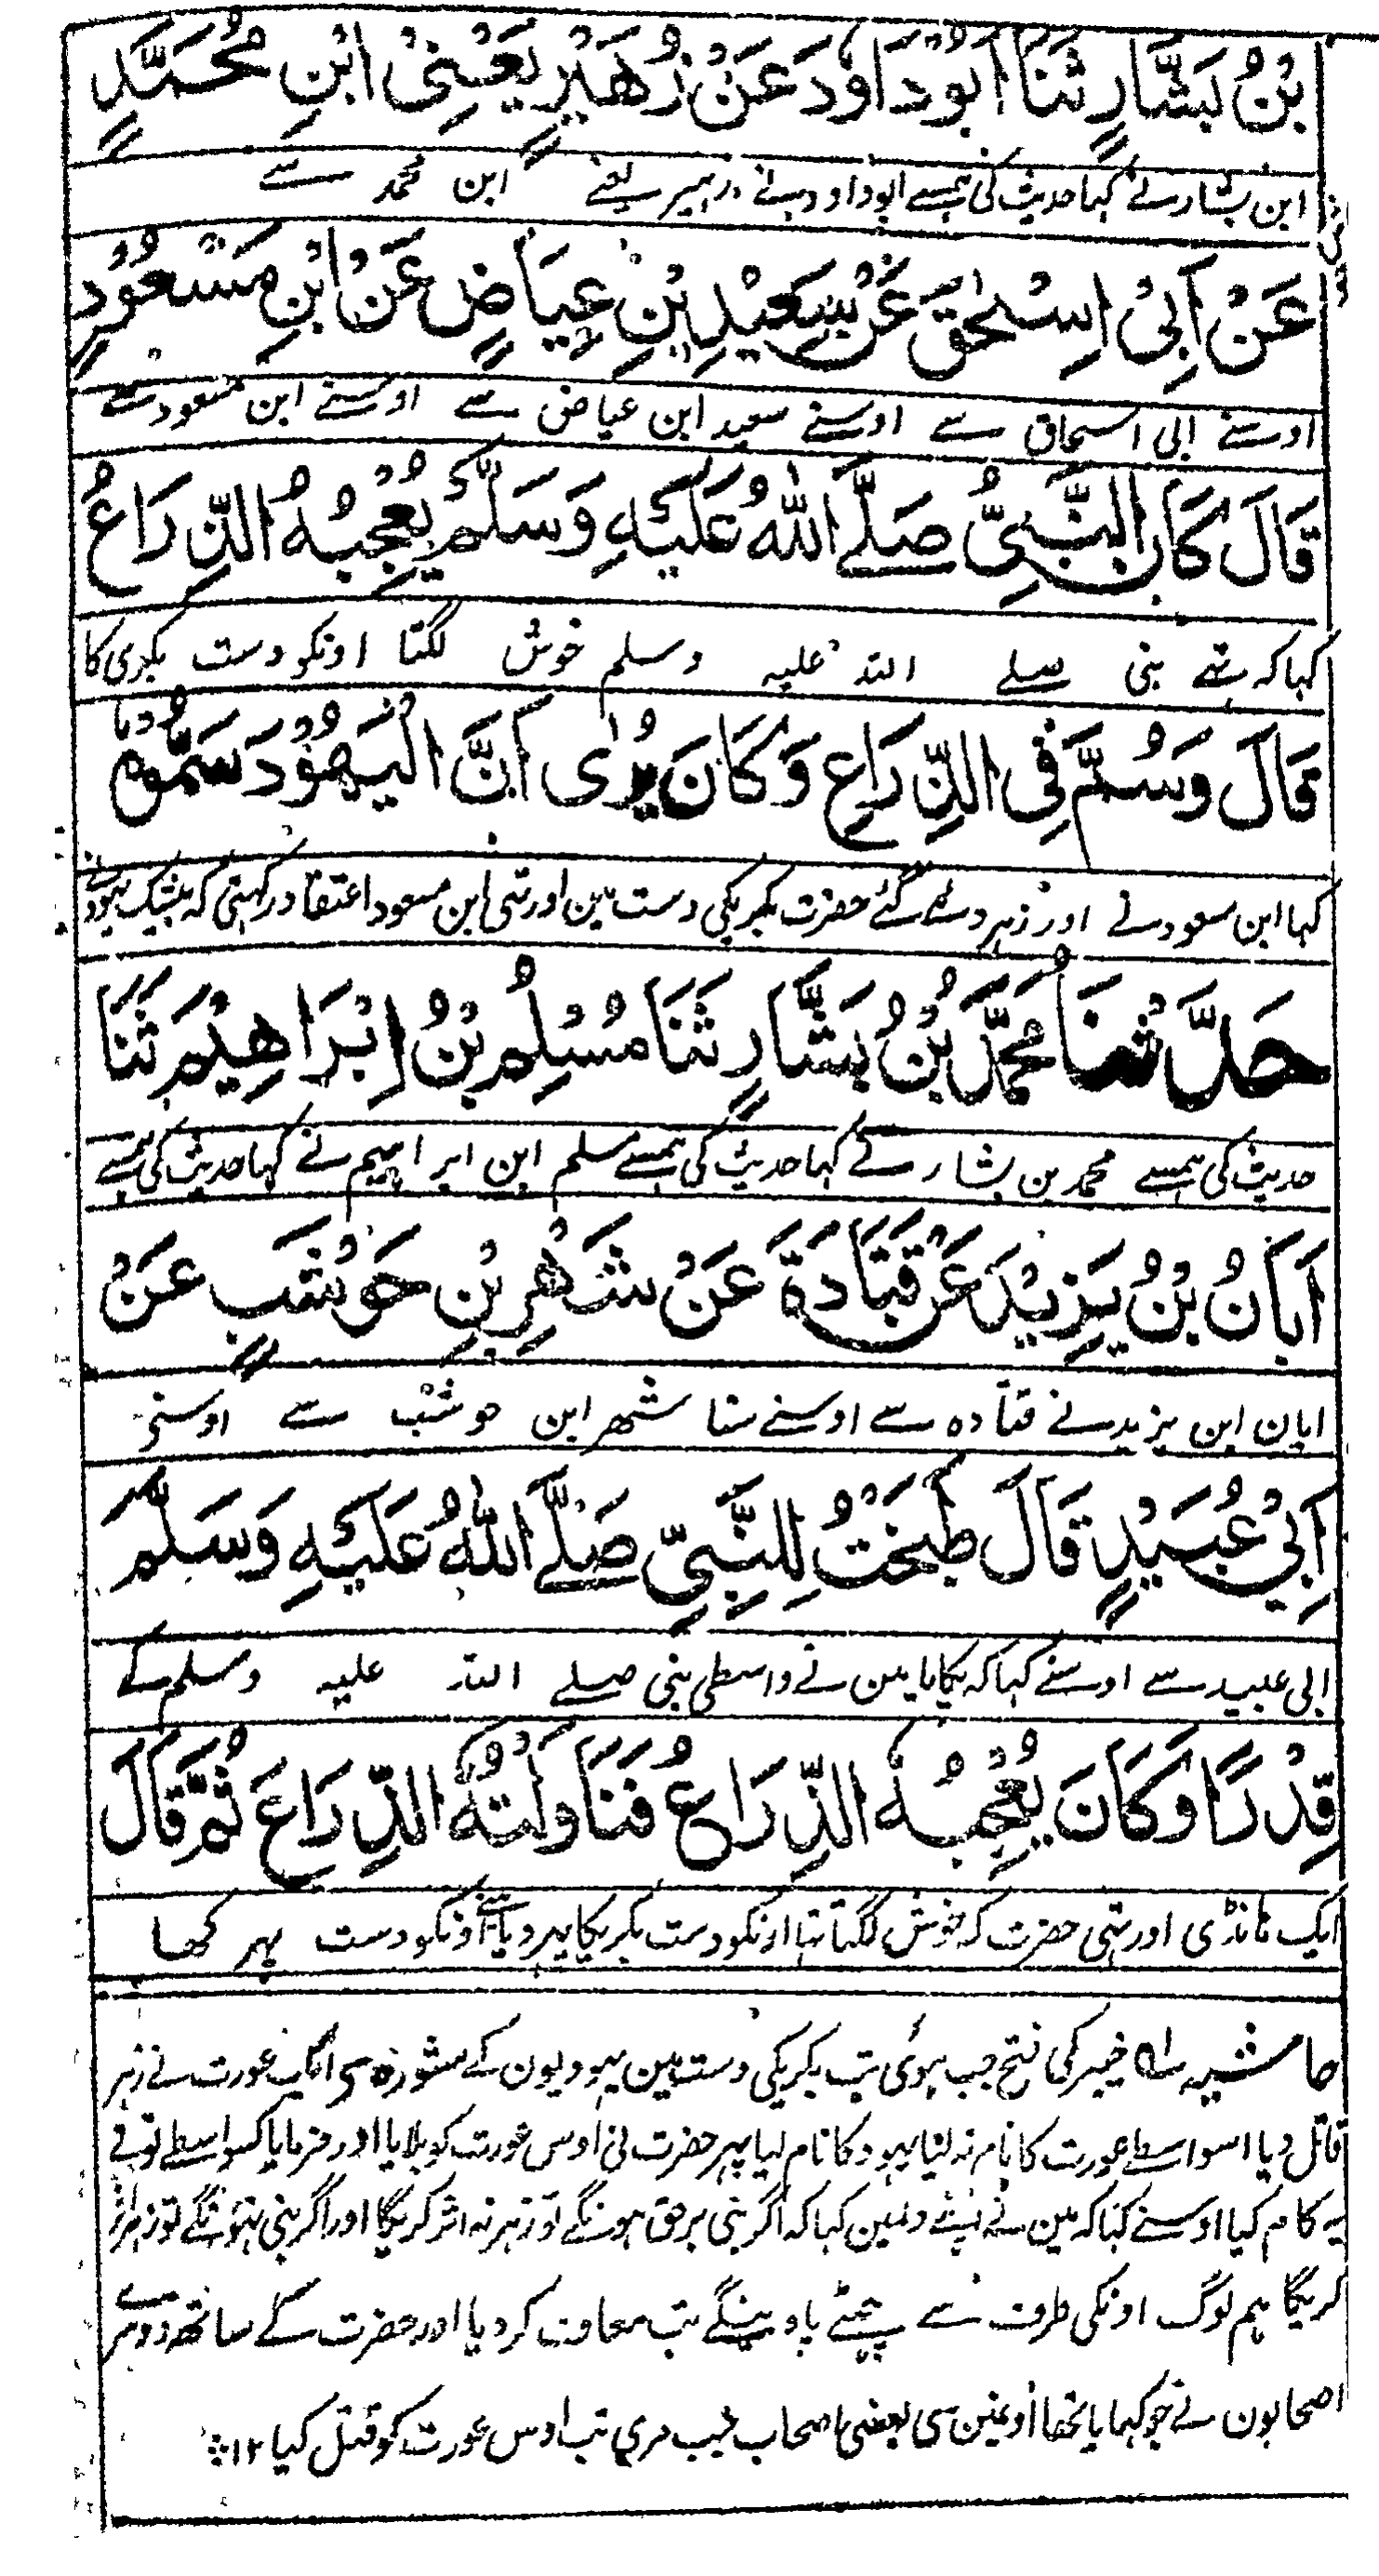 بْنُ بَشَّارٍ ثَنَا اَبُوْدَاوٗدَ عَنْ زُهَيْرٍ يَعْنِىْ ابْنِ مُحَمَّدٍ
ابن بشار نے کہا حدیث کی ہمسے ابوداودنے زہیر یعنے ابن محمد سے
عَنْ اَبِىْ اِسْحٰقَ عَنْ سَعِيْدِ بْنِ عِيَاضٍ عَنْ ابْنِ مَسْعُوْدٍ
اوسنے ابی اسحاق سے اوسنے سعید ابن عیاض سے اوسنے ابن مسعودسے
قَالَ كَانَ النَّبِىُّ صَلَّے اللهُ عَلَيْهِ وَسَلَّمَ يُعْجِبُهُ الذِّرَاعُ
کہاکہ تہے نبی صلے اللہ علیہ وسلم خوش لگتا اونکو دست بکری کا
قَالَ وَسُمَّ فِى الذِّرَاعِ وَكَانَ يُرٰى اَنَّ الْيَهُوْدَ سَمُّوْهُ
کہا ابن مسعودنے اور زہر دئے گئے حضرت بکریکی دست مین اورتہی ابن مسعود اعتقاد رکہتی کہ بیشک یہودنے
حَدَّثَنَا مُحَمَّدُ بْنُ بَشَّارٍ ثَنَا مُسْلِمُ بْنُ اِبْرَاهِيْمَ ثَنَا
حدیث کی ہمسے محمد بن بشار نے کہا حدیث کی ہمسے مسلم ابن ابراہیم نے کہا حدیث کی ہمسے
اَبَانُ بْنُ يَزِيْدَ عَنْ قَتَادَةَ عَنْ شَهْرِ بْنِ حَوْشَبٍ عَنْ
ابان ابن یزیدنے قتادہ سے اوسنے سنا شہر ابن حوشب سے اوسنی
اَبِىْ عُبَيْدٍ قَالَ طَبَخْتُ لِلنَّبِىِّ صَلَّے اللهُ عَلَيْهِ وَسَلَّمَ
ابی عبیدسے اوسنے کہاکہ پکایا مین نے واسطی نبی صلے اللہ علیہ وسلم کے
قِدْرًا وَكَانَ يُعْجِبُهُ الذِّرَاعُ فَنَاوَلْتُهُ الذِّرَاعَ ثُمَّ قَالَ
ایک ہانڈی اورتہی حضرت کہ خوش لگتا تہا اونکو دست بکریکا پہر دیا مینے اونکو دست پہر کہا
حاشیہ ۱ خیبرکی فتح جب ہوئی تب بکریکی دست مین یہودیون کے مشورہ سی ایک عورت نے زہر
قاتل دیا اسواسطے عورت کا نام نہ لیا یہود کا نام لیا پہر حضرت نی اوس عورت کو بلایا اور فرمایا کسواسطے تونے
یہ کام کیا اوسنے کہا کہ مین نے اپنے دلمین کہا کہ اگر نبی برحق ہونگے تو زہر نہ اثر کریگا اور اگر نبی نہونگے تو زہر اثر
کریگا ہم لوگ اونکی طرف سے چھٹے پاوینگے تب معاف کردیا اور حضرت کے ساتھ دوسرے
اصحابون نے جو کہایا تھا اونمین سی بعضی اصحاب جب مری تب اوس عورت کو قتل کیا ۱۲